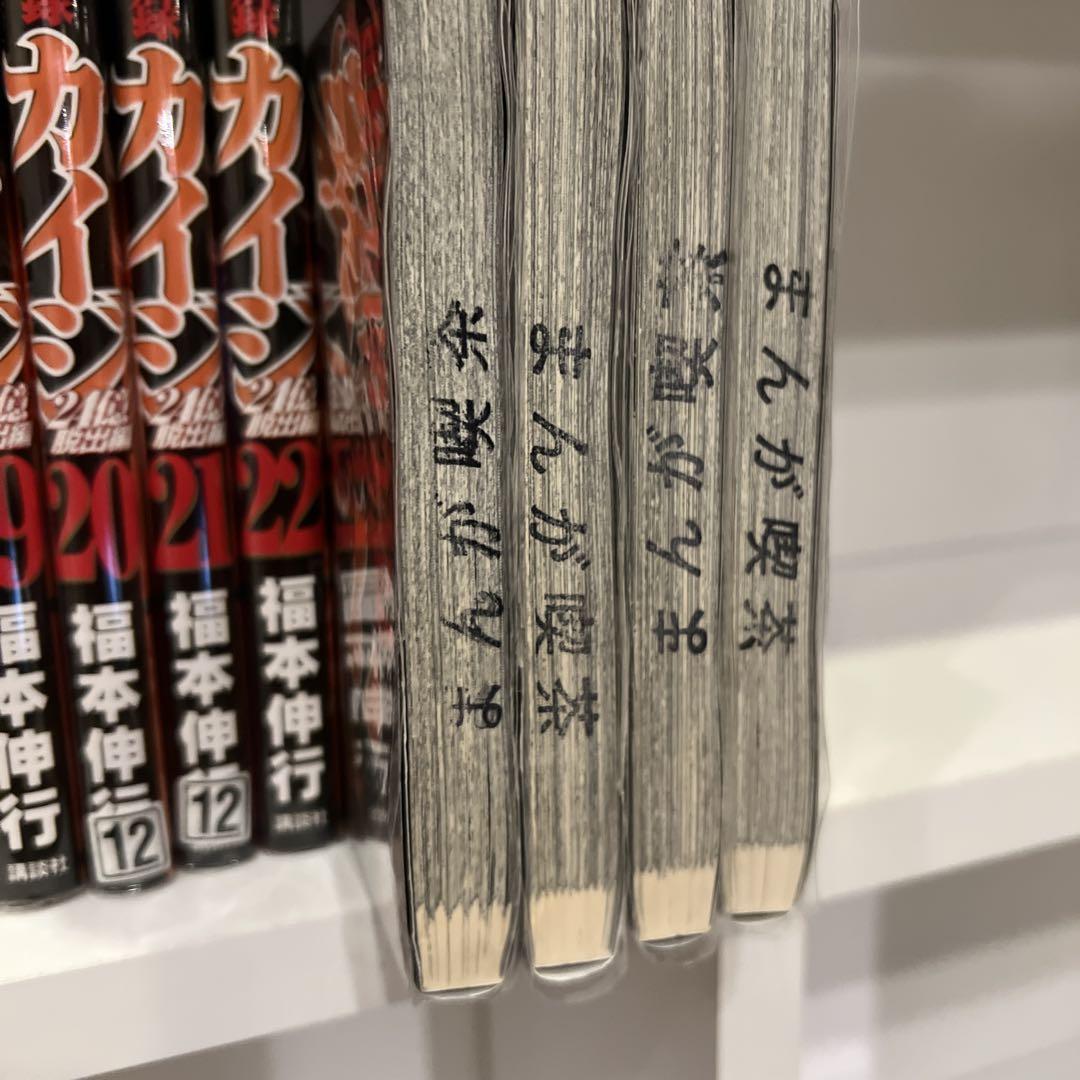 9
福本伸行
講談社
録
カイジ
24億脱出編
20
福本伸行
12
録
カイジ
24億脱出編
21
福本伸行
12
録
カイジ
24億脱出編
22
福本伸行
講談社
まんが喫茶
まんが喫茶
まんが喫茶
まんが喫茶